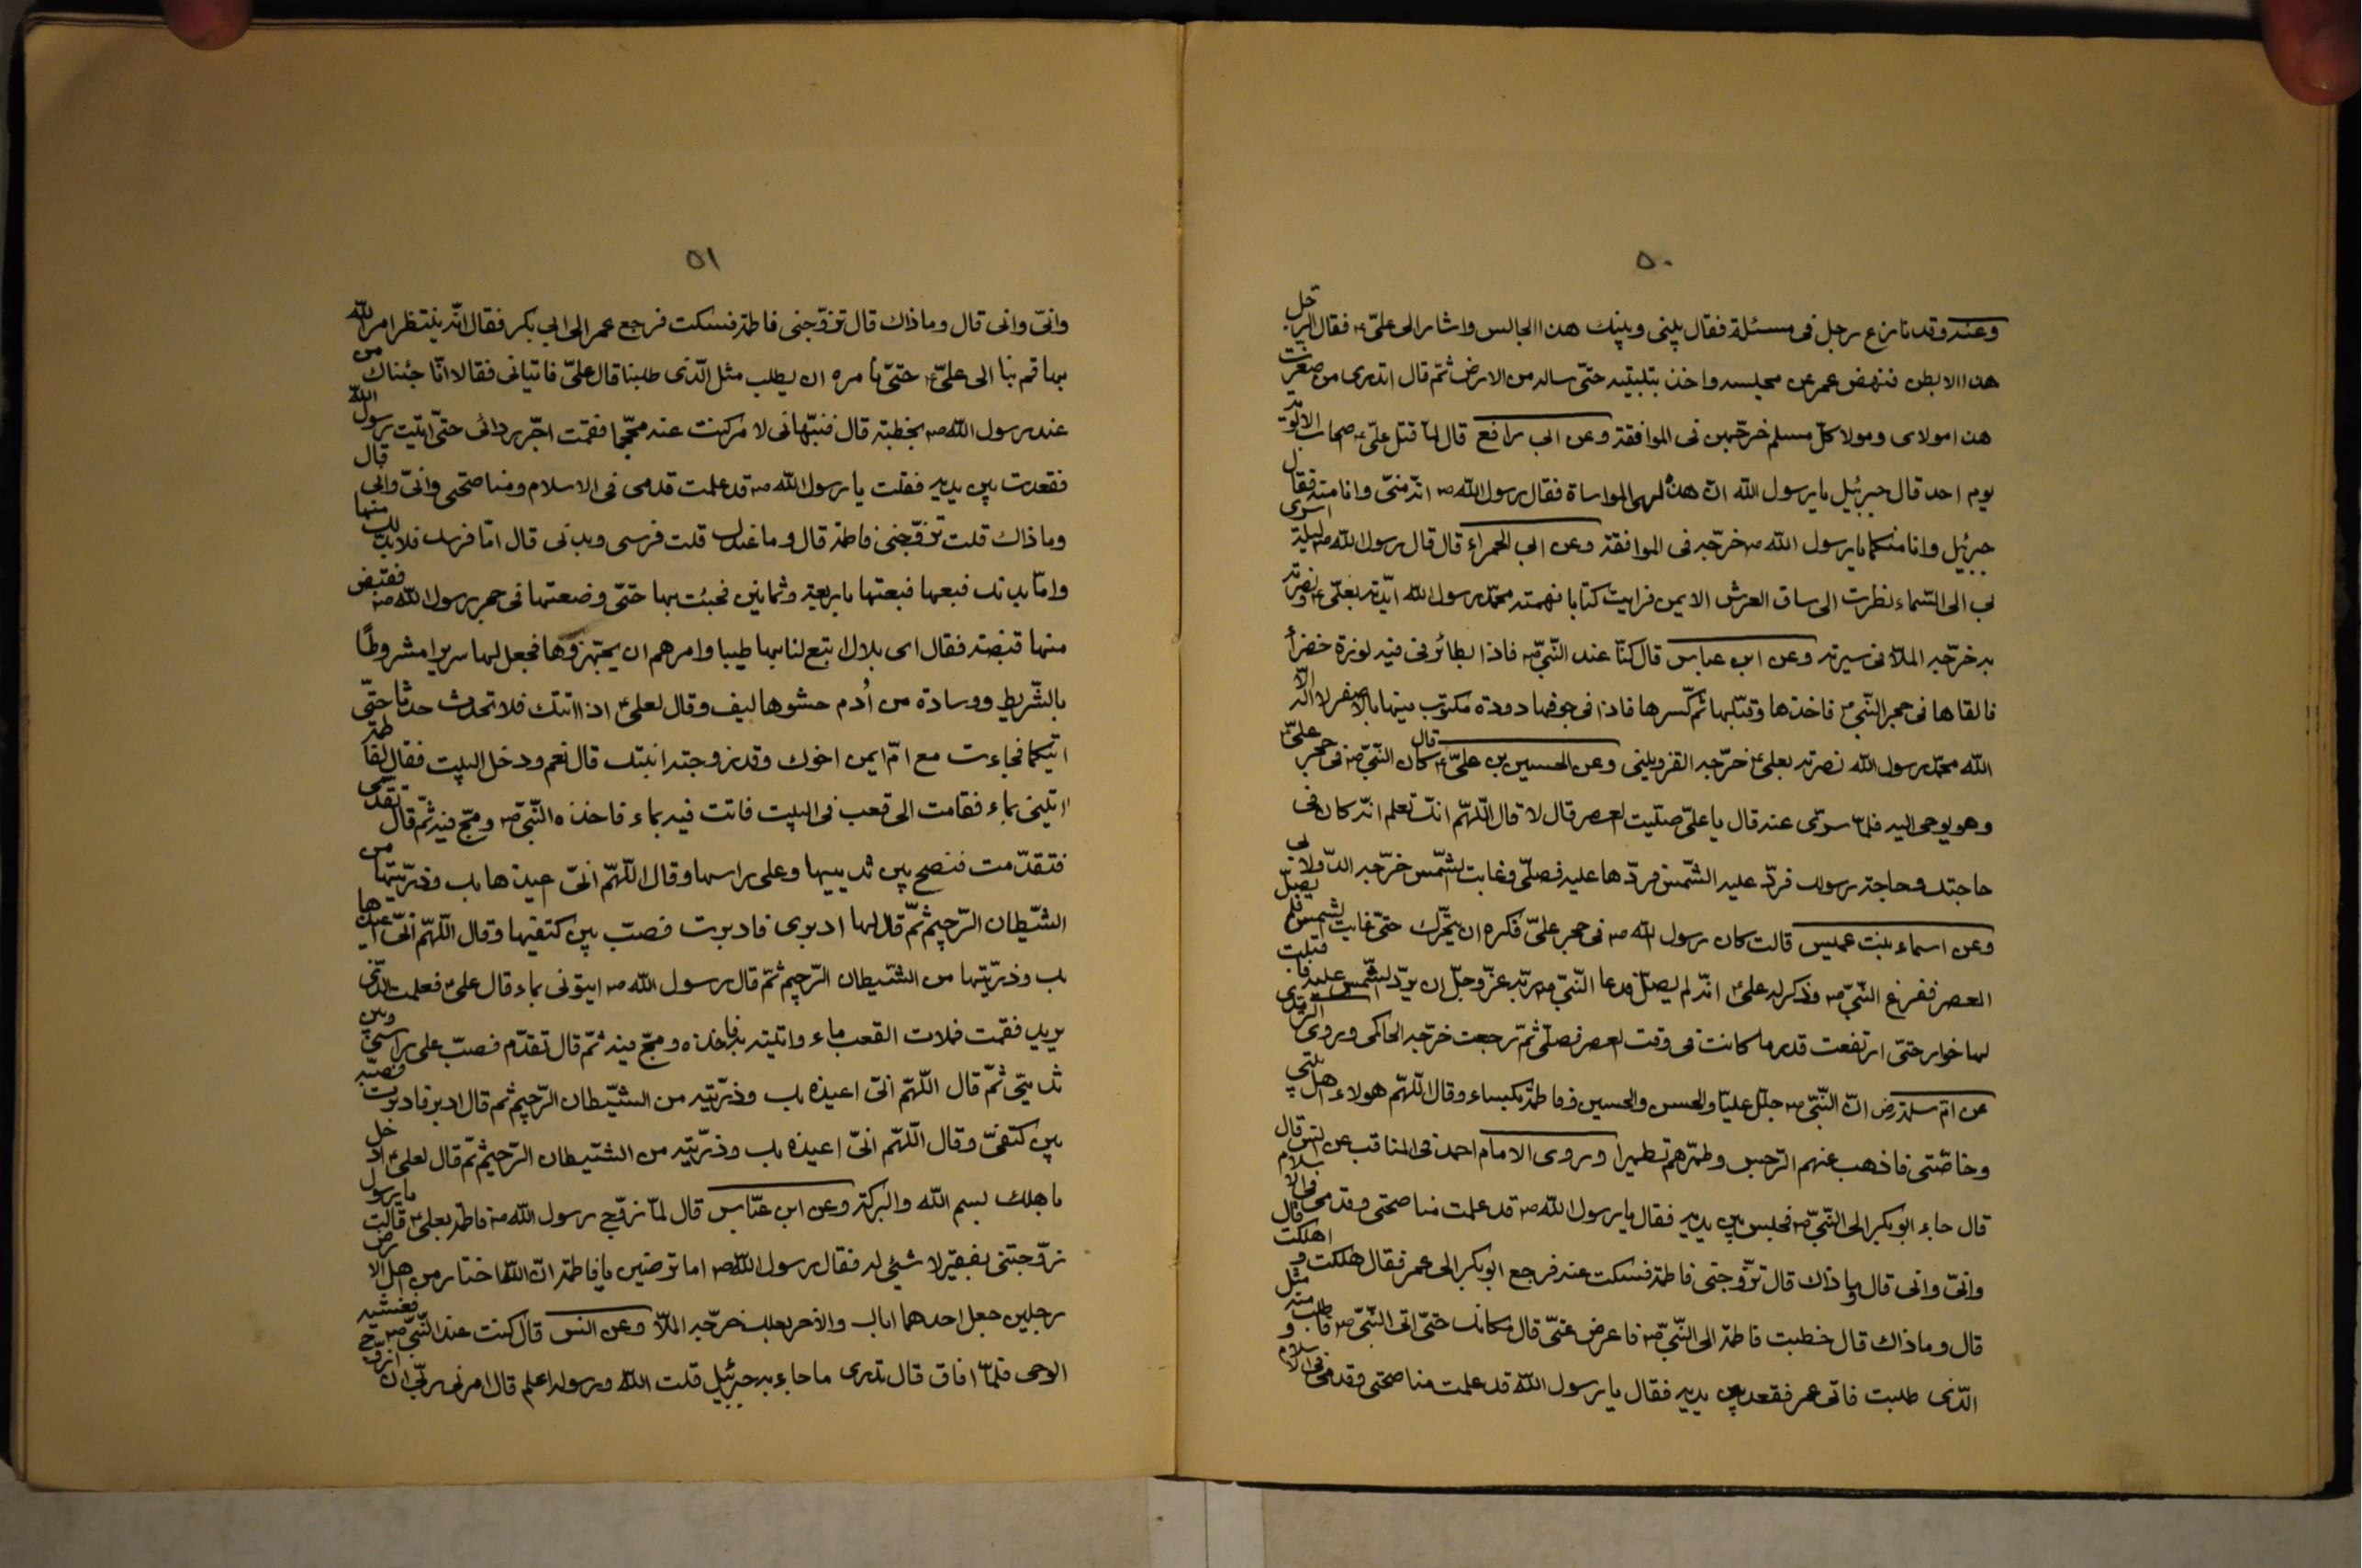 ٥٠
وعنه وقد نازع رجل فى مسئلة فقال بينى وبينك هذا الجالس واشار الى علىّ ع فقال الرّجل
هذا الابطن فنهض عمر عن مجلسه واخذ بتلبيبه حتّى ساله من الارض ثمّ قال اتدرى من صغرت
هذا مولاى ومولا كلّ مسلم خرّجهن فى الموافقة وعن ابى رافع قال لمّا قتل علىّ ع صحاب الالوية
يوم احد قال جبرئيل يا رسول الله انّ هذه لهى المواساة فقال رسول الله ص انّه منّى وانا منه فقال
جبرئيل وانا منكما يا رسول الله ص خرّجه فى الموافقة وعن ابى الحمراء قال قال رسول الله ص ليلة اسرى
بى الى السّماء نظرت الى ساق العرش الايمن فرايت كتابا فهمته محمّد رسول الله ايّدته بعلىّ ع ونصرته
به خرّجه الملّا فى سيرته وعن ابن عباس قال كنّا عند النّبىّ ص فاذا بطائر فى فيه لوزة خضراء
فالقاها فى حجر النّبىّ ص فاخذها وقبّلها ثمّ كسّرها فاذا فى جوفها دودة مكتوب فيها بالاصفر لا اله الّا
الله محمّد رسول الله نصرته بعلى ع خرّجه القزوينى وعن الحسين بن علىّ ع قال كان النّبىّ ص فى حجر علىّ ع
وهو يوحى اليه فلمّا سرّى عنه قال يا علىّ صلّيت العصر قال لا قال اللّهمّ انّك تعلم انّه كان فى
حاجتك وحاجة رسولك فردّ عليه الشّمس فردّها عليه فصلّى وغابت الشّمس خرّجه الدّولابى
وعن اسماء بنت عميس قالت كان رسول الله ص فى حجر علىّ فكره ان يتحّرك حتّى غابت الشمس فلم يصلّ
العصر ففزع النّبىّ ص وذكر له علىّ ع انّه لم يصلّ فدعا النّبىّ ص ربّه عزّ وجلّ ان يردّ الشّمس عليه فاقبلت
لها خوار حتّى ارتفعت قدر ما كانت فى وقت العصر فصلّى ثمّ رجعت خرّجه الحاكمى وروى الترمذى
عن امّ سلمة رض انّ النّبىّ ص جلّل عليّا والحسن والحسين وفاطمة بكساء وقال اللّهمّ هولاء اهل بيتى
وخاصّتى فاذهب عنهم الرّجس وطهّرهم تطهيرا وروى الامام احمد فى المناقب عن انس قال
قال جاء ابو بكر الى النّبىّ ص فجلس بين يديه فقال يا رسول الله ص قد علمت مناصحتى وقدمى فى الاسلام
وانّى وانى قال وما ذاك قال تزوّجنى فاطمة فسكت عنه فرجع ابو بكر الى عمر فقال هلكت واهلكت قال
قال وما ذاك قال خطبت فاطمة الى النّبىّ ص فاعرض عنّى قال مكانك حتّى اتى النّبىّ ص فاطلب منه مثل
الّذى طلبت فاتى عمر فقعد بين يديه فقال يا رسول الله قد علمت مناصحتى وقدمى فى الاسلام و
٥١
وانّى وانى قال وما ذاك قال تزوّجنى فاطمة فسكت فرجع عمر الى ابى بكر فقال انّه ينتظر امر الله
بها قم بنا الى علىّ ع حتّى نامره ان يطلب مثل الّذى طلبنا قال علىّ فاتيانى فقالا انّا جئناك من
عند رسول الله ص بخطبة قال فنبّهانى لامر كنت عنه فقمت اجّر ردائى حتّى اتيت رسول الله
فقعدت بين يديه فقلت يا رسول الله ص قد علمت قدمى فى الاسلام ومناصحتى وانّى وانى قال
وما ذاك قلت تزوّجنى فاطمة قال وما عندك قلت فرسى وبدنى قال امّا فرسك فلابدّ لك منها
وامّا بدنك فبعها فبعتها باربعة وثمانين فجئت بها حتّى وضعتها فى حجر رسول الله ص فقبض
منها قبضة فقال اى بلال ابتع لنا بها طيبا وامرهم ان يجهّزوها فجعل لها سريرا مشروطًا
بالشّريط ووسادة من اُدم حشوها ليف وقال لعلى ع اذا اتتك فلا تحدث حدثا حتّى
اتيكما فجاءت مع امّ ايمن اخوك وقد زوجته ابنتك قال نعم ودخل البيت فقال لفاطمة
ايتينى بماء فقامت الى قعب فى البيت فاتت فيه بماء فاخذه النّبىّ ص ومجّ فيه ثمّ قال تقدّمى
فتقدّمت فنضح بين ثدييها وعلى راسها وقال اللّهمّ انّى اعيذها بك وذرّيتها من
الشّيطان الرّجيم ثمّ قال لها ادبرى فادبرت فصبّ بين كتفيها وقال اللّهمّ انّى اعيذها
بك وذرّيتها من الشّيطان الرّجيم ثمّ قال رسول الله ص ايتونى بماء قال علىّ ع فعلمت الّذى
يريد فقمت فملات القعب ماء واتيته به فاخذه ومجّ فيه ثمّ قال تقدّم فصبّ على راسى وبين
ثديىّ ثمّ قال اللّهمّ انّى اعيذه بك وذرّيته من الشّيطان الرّجيم ثمّ قال ادبر فادبرت فصبّه
بين كتفىّ وقال اللّهمّ انّى اعيذه بك وذرّيته من الشّيطان الرّجيم ثمّ قال لعلى ع ادخل
باهلك بسم الله والبركة وعن ابن عبّاس قال لمّا زوّج رسول الله ص فاطمة بعلى ع قالت يا رسول
زوّجتنى بفقير لا شئ له فقال رسول الله ص اما ترضين يا فاطمة انّ الله اختار من اهل الارض
رجلين جعل احدهما اباك والاخر بعلك خرّجه الملّا وعن انس قال كنت عند النّبىّ ص فغشيه
الوحى فلمّا افاق قال تدرى ما جاء به جبرئيل قلت الله ورسوله اعلم قال امرنى ربّى ان ازوّج